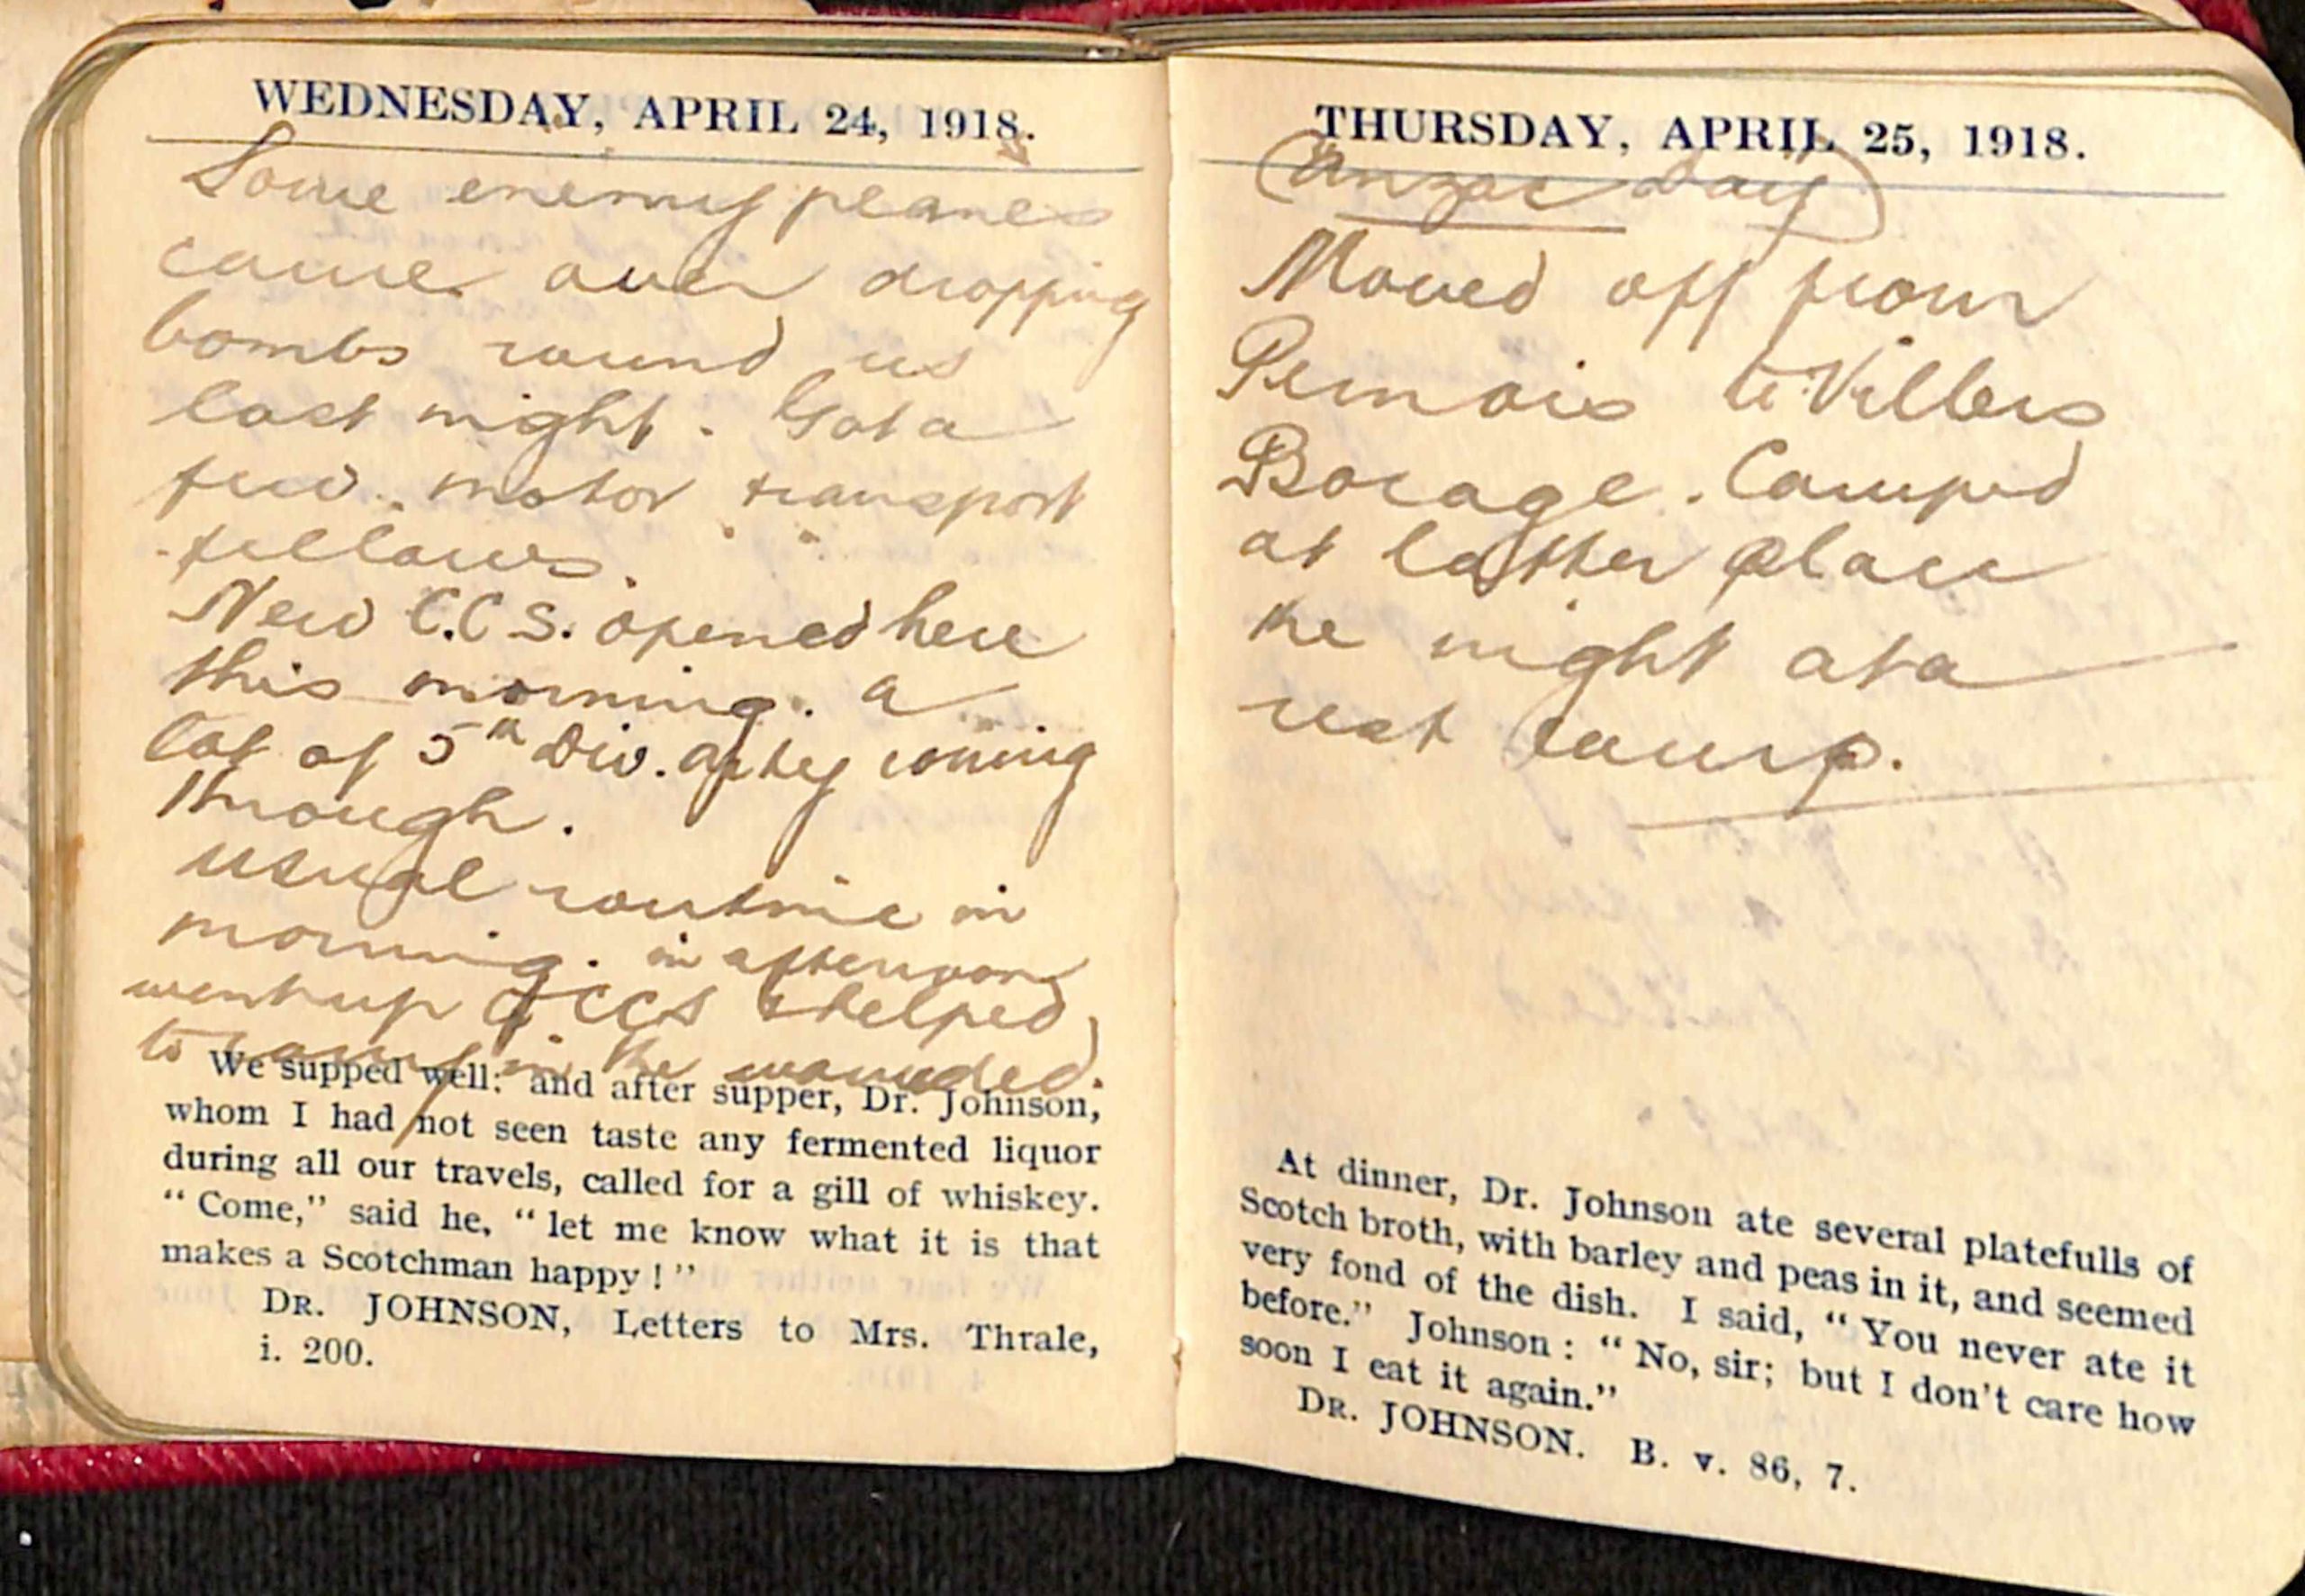 WEDNESDAY, APRIL 24, 1918.
Some enemy planes
came over dropping
bombs round us
last night. Got a
few motor transport
fellows.
New C.C.S. opened here
this morning. a
lot of 5th Div. artey coming
through.
usual routine in
morning. in afternoon
went up to CCS & helped
to carry in the wounded.
We supped well: and after supper, Dr. Johnson,
whom I had not seen taste any fermented liquor
during all our travels, called for a gill of whiskey.
“Come,” said he, “let me know what it is that
makes a Scotchman happy!”
DR. JOHNSON, Letters to Mrs. Thrale,
i. 200.
THURSDAY, APRIL 25, 1918.
(Anzac Day)
Moved off from
Pernois to Villers
Bocage. Camped
at latter place
the night at a
rest camp.
At dinner, Dr. Johnson ate several platefulls of
Scotch broth, with barley and peas in it, and seemed
very fond of the dish. I said, “You never ate it
before.” Johnson: “No, sir; but I don't care how
soon I eat it again.”
DR. JOHNSON. B. v. 86, 7.